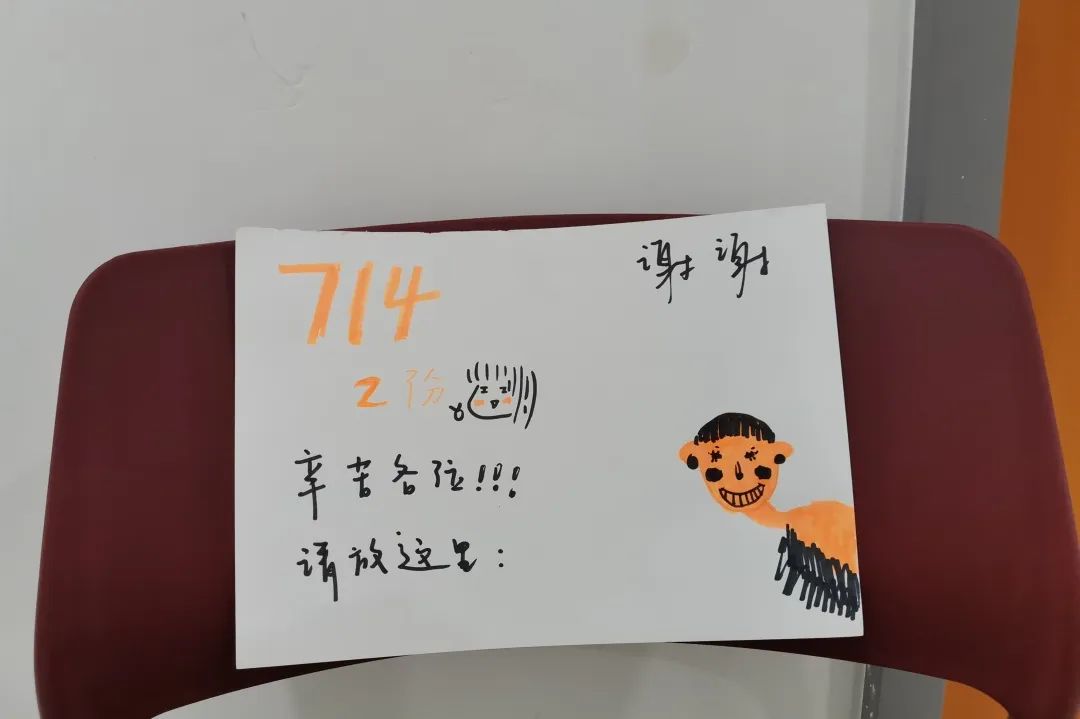 714
谢谢
2份
辛苦各位!!!
请放这里: